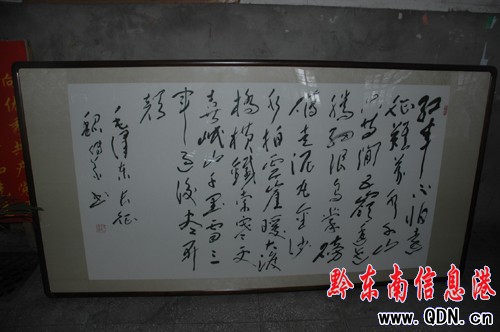 红军不怕远
征難萬水千山
只等闲五嶺逶迤
腾细浪烏蒙磅
礴走泥丸金沙
水拍雲崖暖大渡
橋横鐵索寒更
喜岷山千里雪三
軍过後尽开
颜
毛澤东长征
书
黔东南信息港
www.QDN.cn